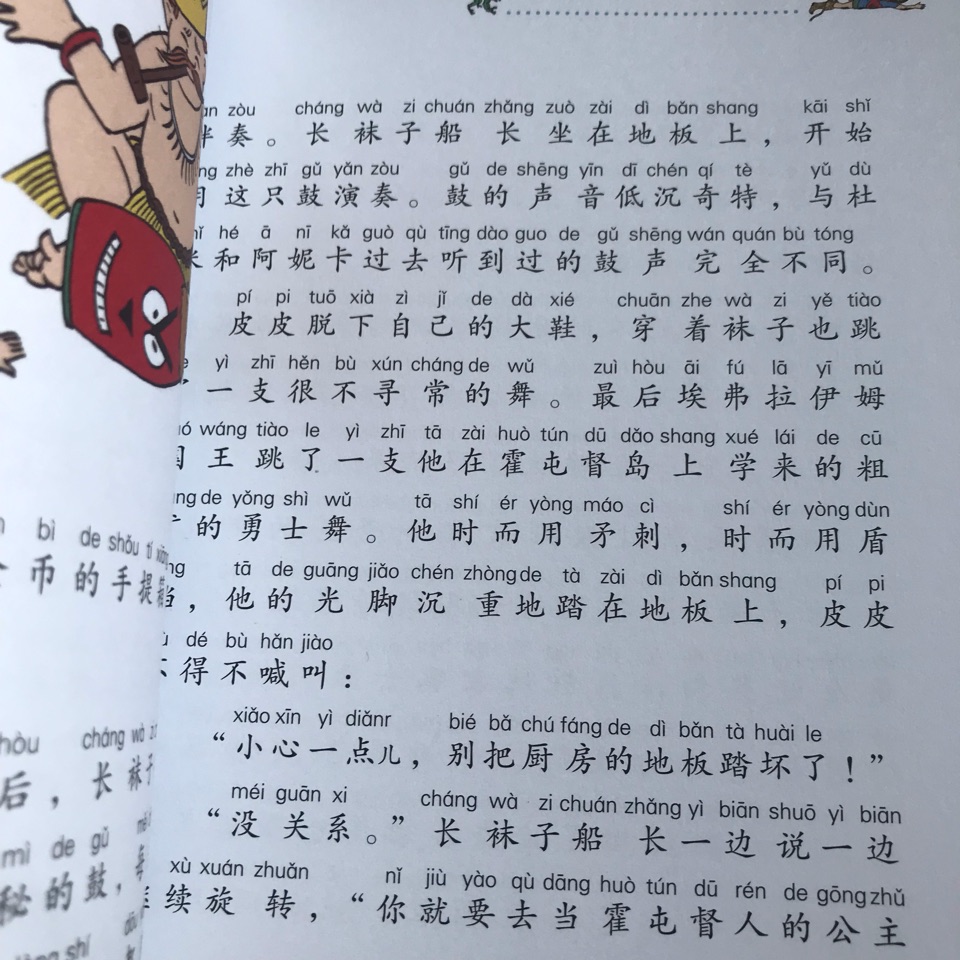 bì de shǒu tí
币的手提
hòu cháng wà
后，长袜子
mì de gǔ
秘的鼓，每
shí
zòu cháng wà zi chuán zhǎng zuò zài dì bǎn shang kāi shǐ
伴奏。长袜子船长坐在地板上，开始
zhè zhī gǔ yǎn zòu gǔ de shēng yīn dī chén qí tè yǔ dù
用这只鼓演奏。鼓的声音低沉奇特，与杜
hé ā nī kǎ guò qù tīng dào guo de gǔ shēng wán quán bù tóng
米和阿妮卡过去听到过的鼓声完全不同。
pí pi tuō xià zì jǐ de dà xié chuān zhe wà zi yě tiào
皮皮脱下自己的大鞋，穿着袜子也跳
yì zhī hěn bù xún cháng de wǔ zuì hòu āi fú lā yī mǔ
了一支很不寻常的舞。最后埃弗拉伊姆
wáng tiào le yì zhī tā zài huò tún dū dǎo shang xué lái de cū
国王跳了一支他在霍屯督岛上学来的粗
de yǒng shì wǔ tā shí ér yòng máo cì shí ér yòng dùn
犷的勇士舞。他时而用矛刺，时而用盾
tā de guāng jiǎo chén zhòng de tà zài dì bǎn shang pí pi
挡，他的光脚沉重地踏在地板上，皮皮
dé bù hǎn jiào
不得不喊叫：
xiǎo xīn yì diǎnr bié bǎ chú fáng de dì bǎn tà huài le
“小心一点儿，别把厨房的地板踏坏了！”
méi guān xi cháng wà zi chuán zhǎng yì biān shuō yì biān
“没关系。”长袜子船长一边说一边
xù xuán zhuǎn nǐ jiù yào qù dāng huò tún dū rén de gōng zhǔ
继续旋转，“你就要去当霍屯督人的公主